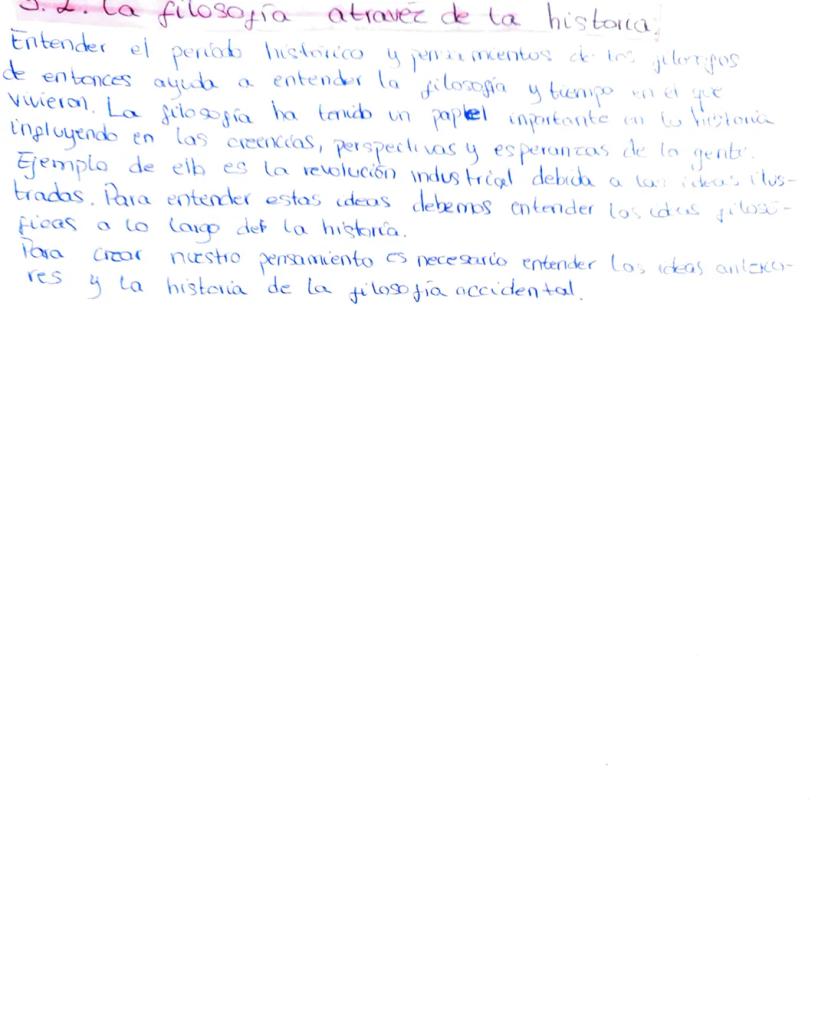 3.2. La filosofía atravéz de la historia.
Entender el período histórico y pensamientos de los filósofos
de entonces ayuda a entender la filosofía y tiempo en el que
vivieron. La filosofía ha tenido un papel inportante en la historia
influyendo en las creencias, perspectivas y esperanzas de la gente.
Ejemplo de ello es la revolución industrial debida a las ideas ilus-
tradas. Para entender estas ideas debemos entender las ideas filosó-
ficas a lo largo def la historia.
Para crear nuestro pensamiento es necesario entender las ideas anterio-
res y la historia de la filosofía occidental.